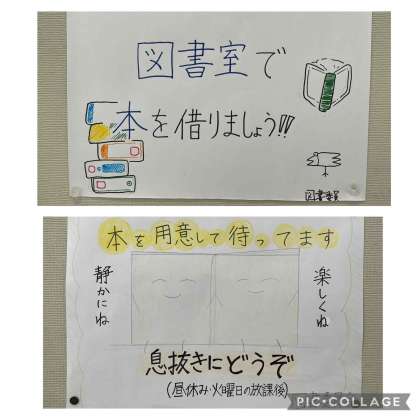 図書室で
本を借りましょう!!
図書委員
本を用意して待ってます
静かにね
楽しくね
息抜きにどうぞ
(昼休み・火曜日の放課後)
PIC•COLLAGE